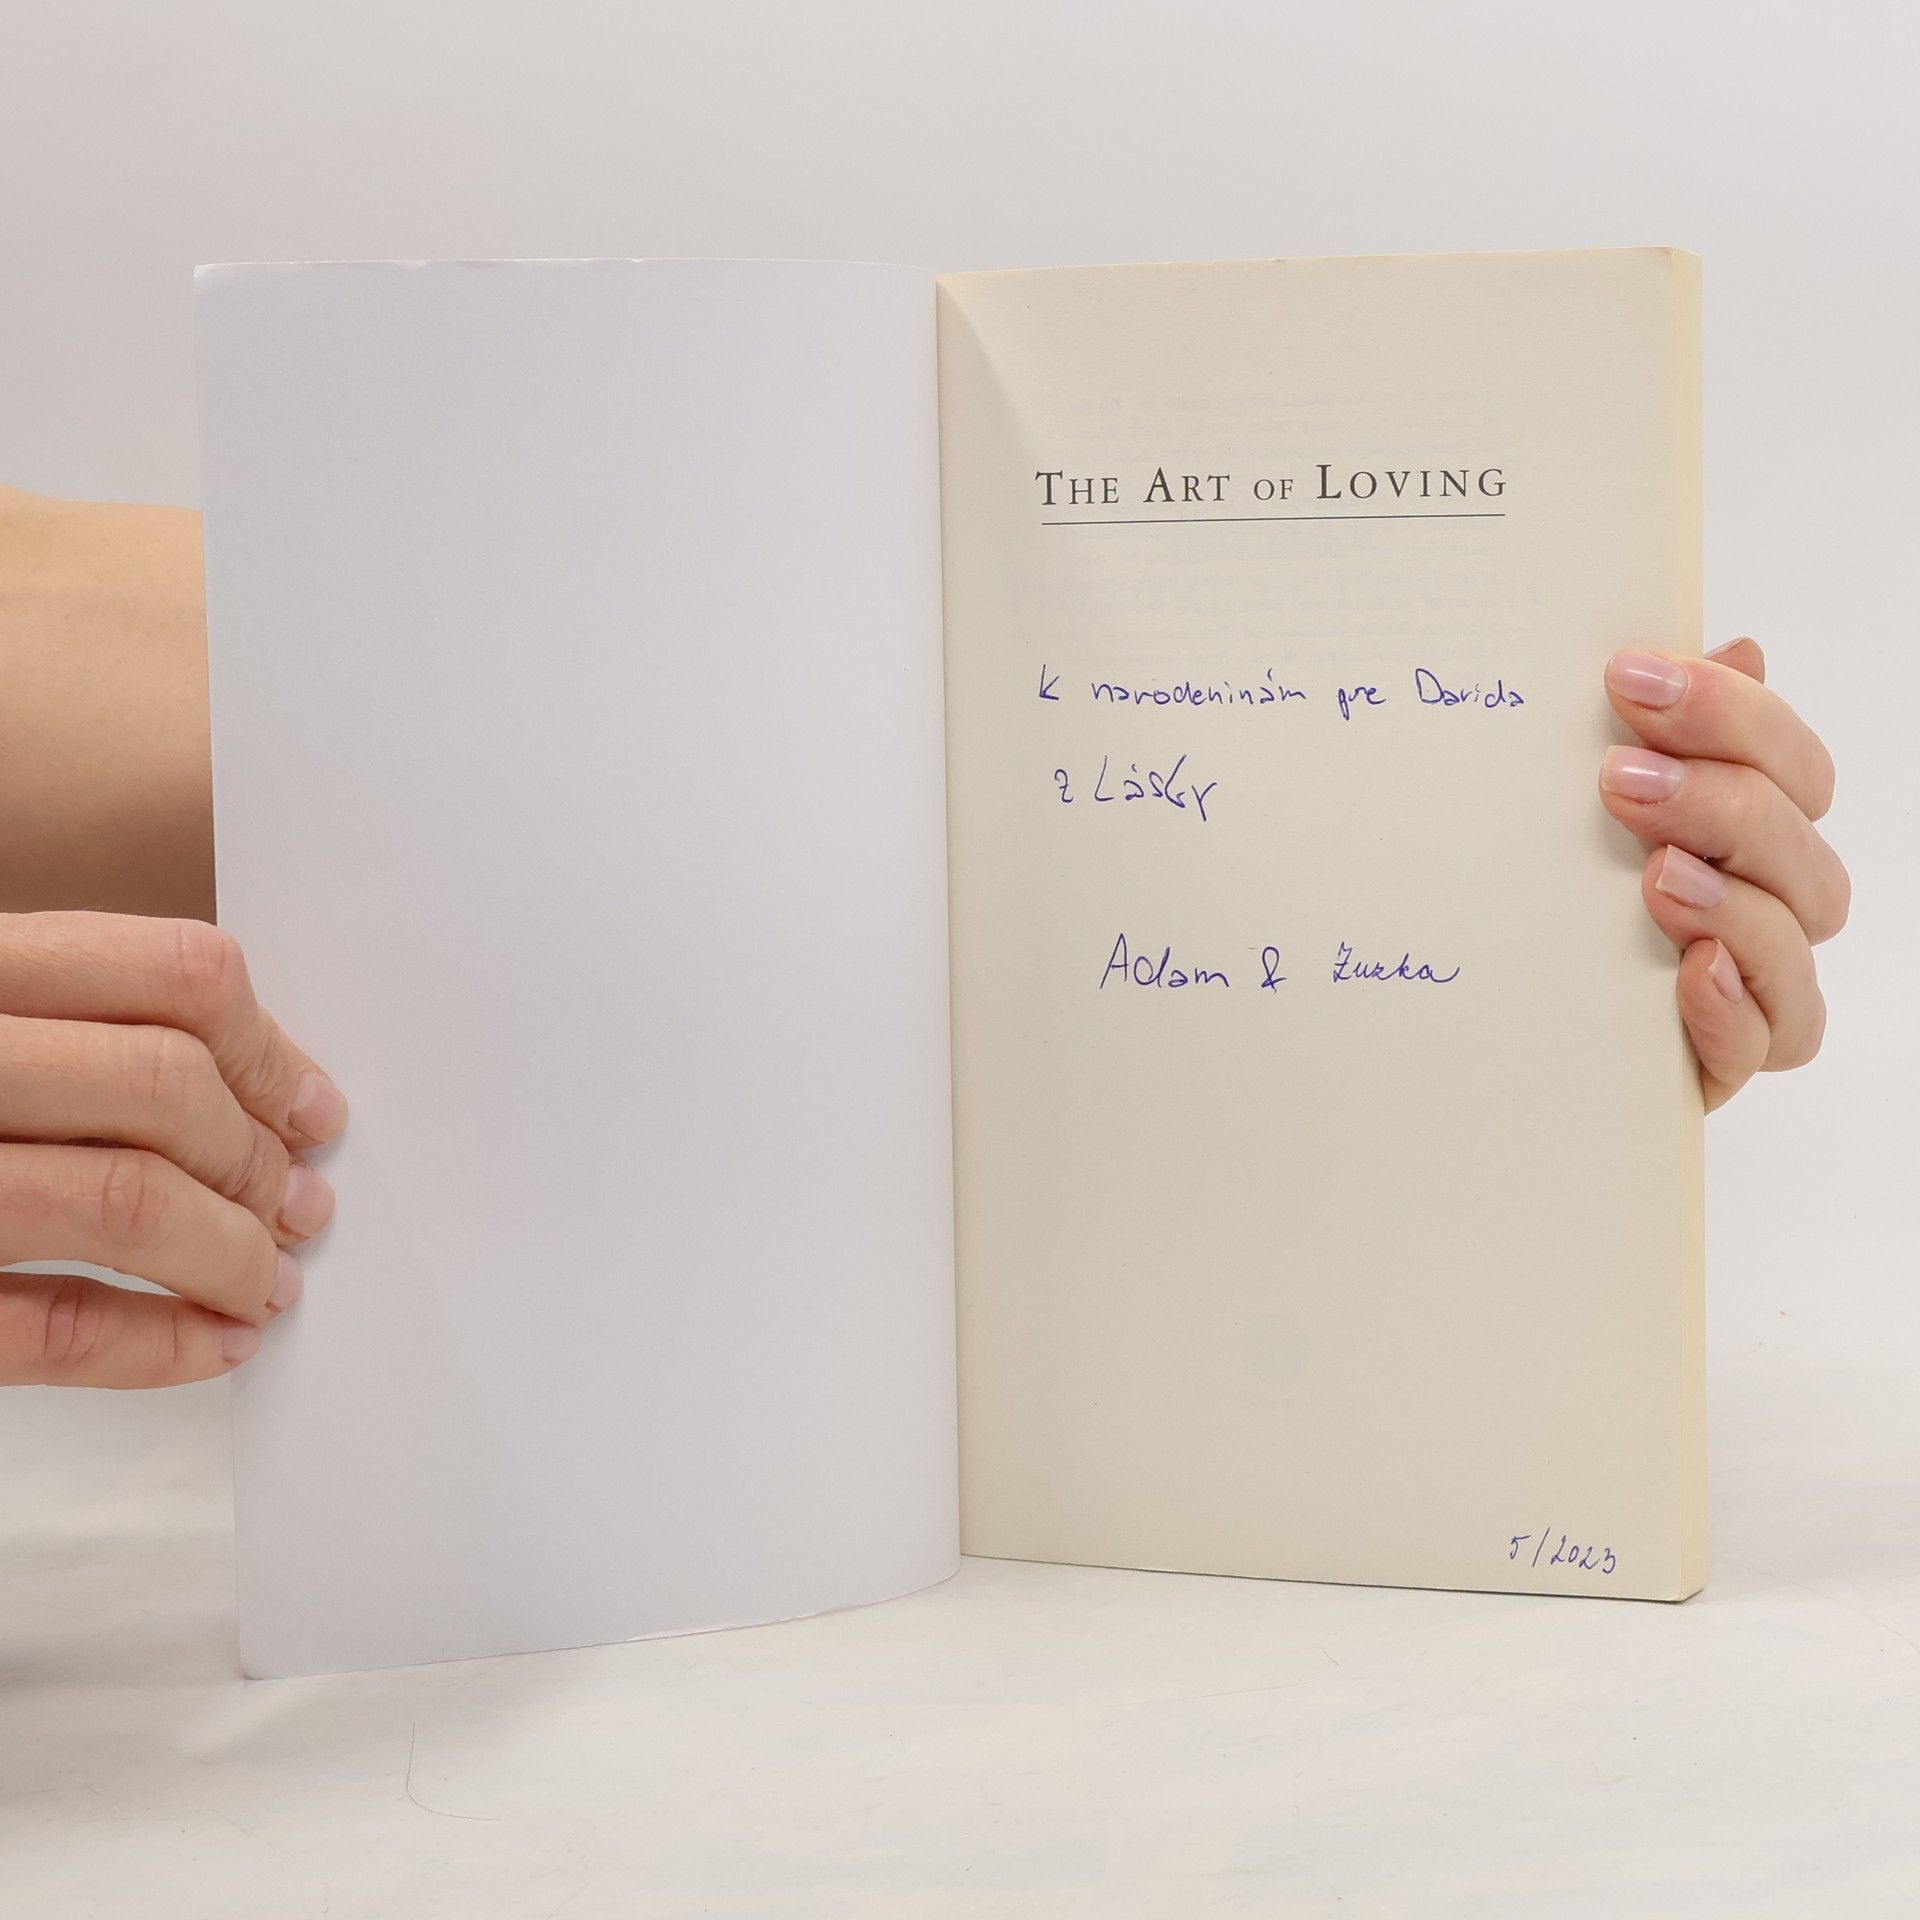 THE ART OF LOVING
K narodeninám pre Davida
z Lásky
Adam & Zuzka
5/2023